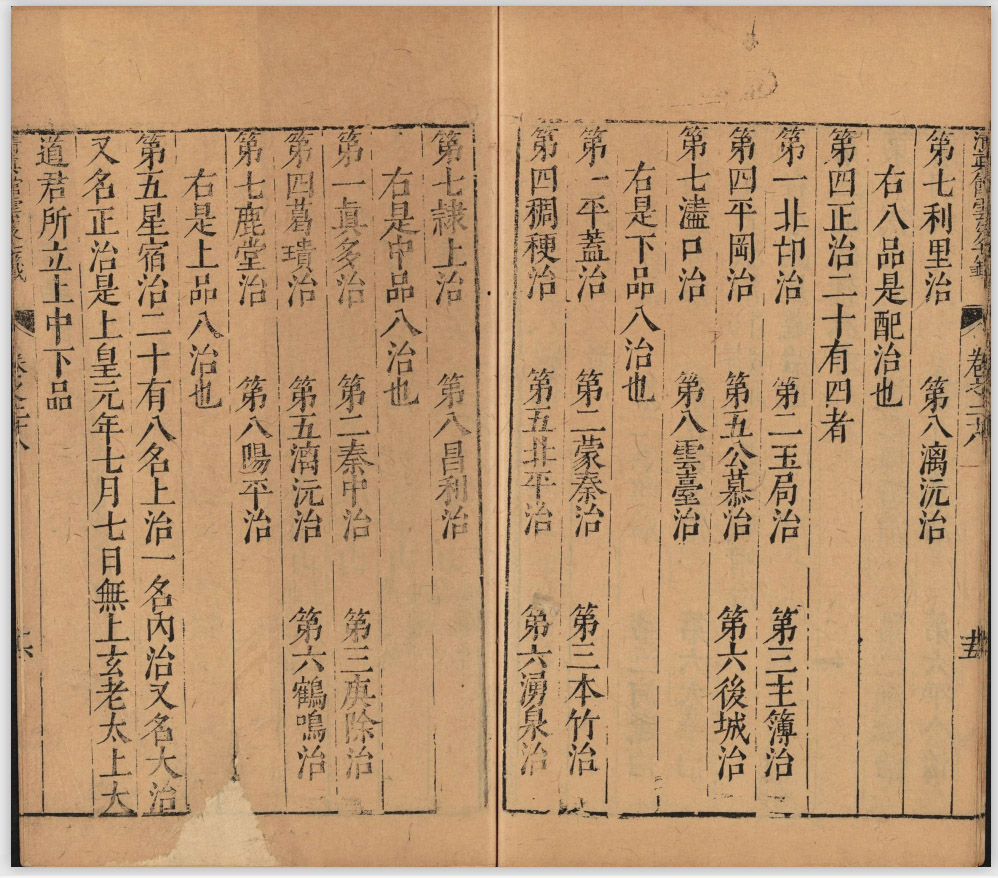 第七利里治 第八漓沅治
右八品是配治也
第四正治二十有四者
第一北邙治 第二玉局治 第三主簿治
第四平岡治 第五公慕治 第六後城治
第七濜口治 第八雲臺治
右是下品八治也
第一平蓋治 第二蒙秦治 第三本竹治
第四稠稉治 第五北平治 第六湧泉治
第七隷上治 第八昌利治
右是中品八治也
第一眞多治 第二秦中治 第三庚除治
第四葛璝治 第五湳沅治 第六鶴鳴治
第七鹿堂治 第八陽平治
右是上品八治也
第五星宿治二十有八名上治一名內治又名大治
又名正治是上皇元年七月七日無上玄老太上大
道君所立上中下品